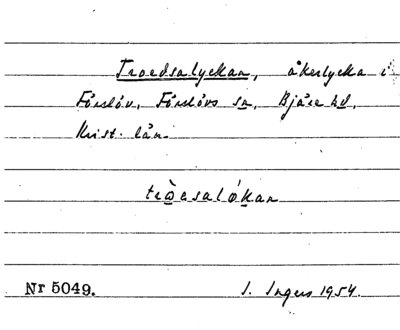 Troedsalyckan, åkerlycka i
Förslöv, Förslövs sn, Bjäre hd,
Krist. län.
trɷ̀esaló̱kan
Nr 5049.
I. Ingers 1954.